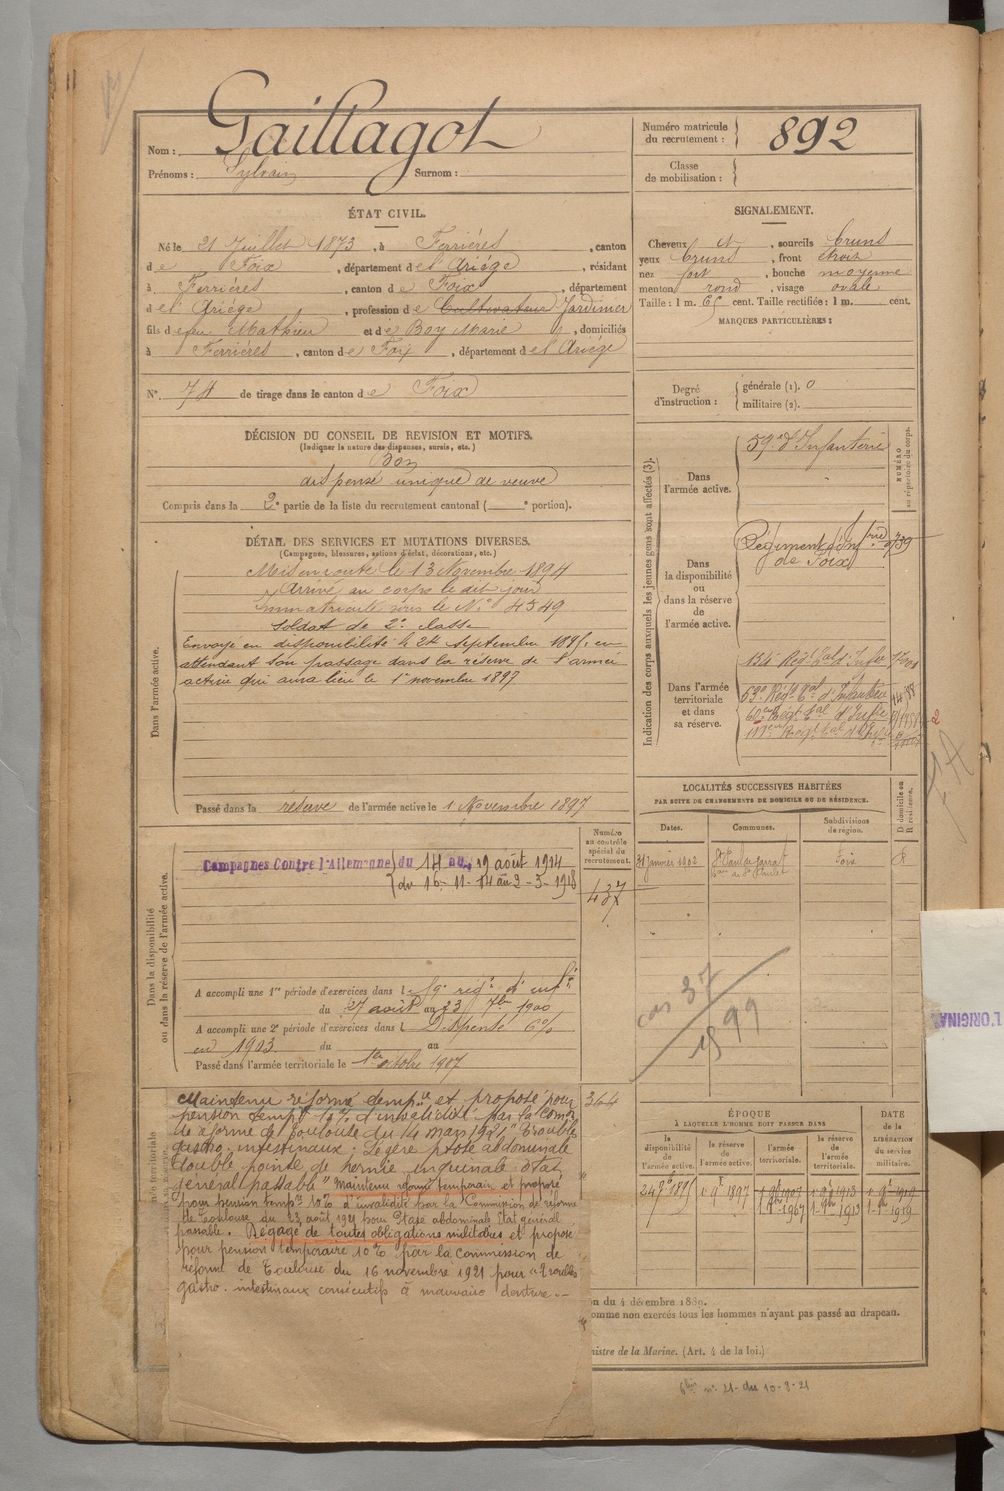 Gaillagot
Nom :
Prénoms : Sylvain Surnom :
Numéro matricule du recrutement : 892
Classe de mobilisation :
ÉTAT CIVIL.
Né le 21 Juillet 1873, à Ferrières, canton
de Foix, département de l'Ariége, résidant
à Ferrières, canton de Foix, département
de l'Ariége, profession de Cultivateur Jardinier
fils de feu Mathieu et de Boy Marie, domiciliés
à Ferrières, canton de Foix, département de l'Ariége
N° 74 de tirage dans le canton de Foix
DÉCISION DU CONSEIL DE REVISION ET MOTIFS.
(Indiquer la nature des dispenses, sursis, etc.)
Bon
dispensé unique de veuve
Compris dans la 2e partie de la liste du recrutement cantonal ( e portion).
DÉTAIL DES SERVICES ET MUTATIONS DIVERSES.
(Campagnes, blessures, actions d'éclat, décorations, etc.)
Dans l'armée active.
Mis en route le 13 Novembre 1894
Arrivé au corps le dit jour
Immatriculé sous le N° 4549
Soldat de 2e classe
Envoyé en disponibilité le 24 septembre 1895, en
attendant son passage dans la réserve de l'armée
active qui aura lieu le 1er novembre 1897
Passé dans la réserve de l'armée active le 1 Novembre 1897
Dans la disponibilité
ou dans la réserve de l'armée active.
Numéro
au contrôle
spécial du
recrutement.
437
Campagnes Contre l'Allemagne du 14 au 19 août 1914
du 16-11-14 au 2-3-1918
A accompli une 1re période d'exercices dans l 59e régt d'infie
du 27 août au 23 7bre 1900
A accompli une 2e période d'exercices dans l Dispensé 6%
en 1903 du au
Passé dans l'armée territoriale le 1er octobre 1907
364
Maintenu réformé tempre et proposé pour
pension tempre 10% d'invalidité par la Comon
de réforme de Toulouse du 14 mars 1921 "Troubles
gastro-intestinaux. Légère ptose abdominale
double pointe de hernie inguinale état
général passable" Maintenu réformé temporaire et proposé
pour pension tempre 10% d'invalidité par la Commission de réforme
de Toulouse du 23 août 1921 pour Ptose abdominale Etat général
passable. Dégagé de toutes obligations militaires et proposé
pour pension temporaire 10% par la commission de
réforme de Toulouse du 16 novembre 1921 pour "Troubles
gastro-intestinaux consécutifs à mauvaise denture.-
SIGNALEMENT.
Cheveux et, sourcils bruns
yeux bruns, front étroit
nez fort, bouche moyenne
menton rond, visage ovale
Taille : 1 m. 65 cent. Taille rectifiée : 1 m. cent.
MARQUES PARTICULIÈRES :
Degré d'instruction : générale (1). 0
militaire (2).
Indication des corps auxquels les jeunes gens sont affectés (3).
NUMÉRO
au répertoire du corps.
Dans
l'armée active.
59e d'Infanterie
Dans
la disponibilité
ou
dans la réserve
de
l'armée active.
Régiment d'Infrie
de Foix
Dans l'armée
territoriale
et dans
sa réserve.
134 Régt tal d'Infie
53e Régt tal d'Infanterie
LOCALITÉS SUCCESSIVES HABITÉES
PAR SUITE DE CHANGEMENTS DE DOMICILE OU DE RÉSIDENCE.
D domicile ou
R résidence.
Dates. Communes. Subdivisions de région.
31 janvier 1902 St Paul de Jarrat Foix
cas 37
1899
ÉPOQUE
À LAQUELLE L'HOMME DOIT PASSER DANS
DATE
de la
LIBÉRATION
du service
militaire.
la disponibilité de l'armée active. la réserve de l'armée active. l'armée territoriale. la réserve de l'armée territoriale.
24 7bre 1895 1er 9bre 1897 1er 9bre 1907 1er 9bre 1913 1er 9bre 1919
on du 4 décembre 1889.
omme non exercés tous les hommes n'ayant pas passé au drapeau.
nistre de la Marine. (Art. 4 de la loi.)
n° 21- du 10-8-21
L'ORIGINA